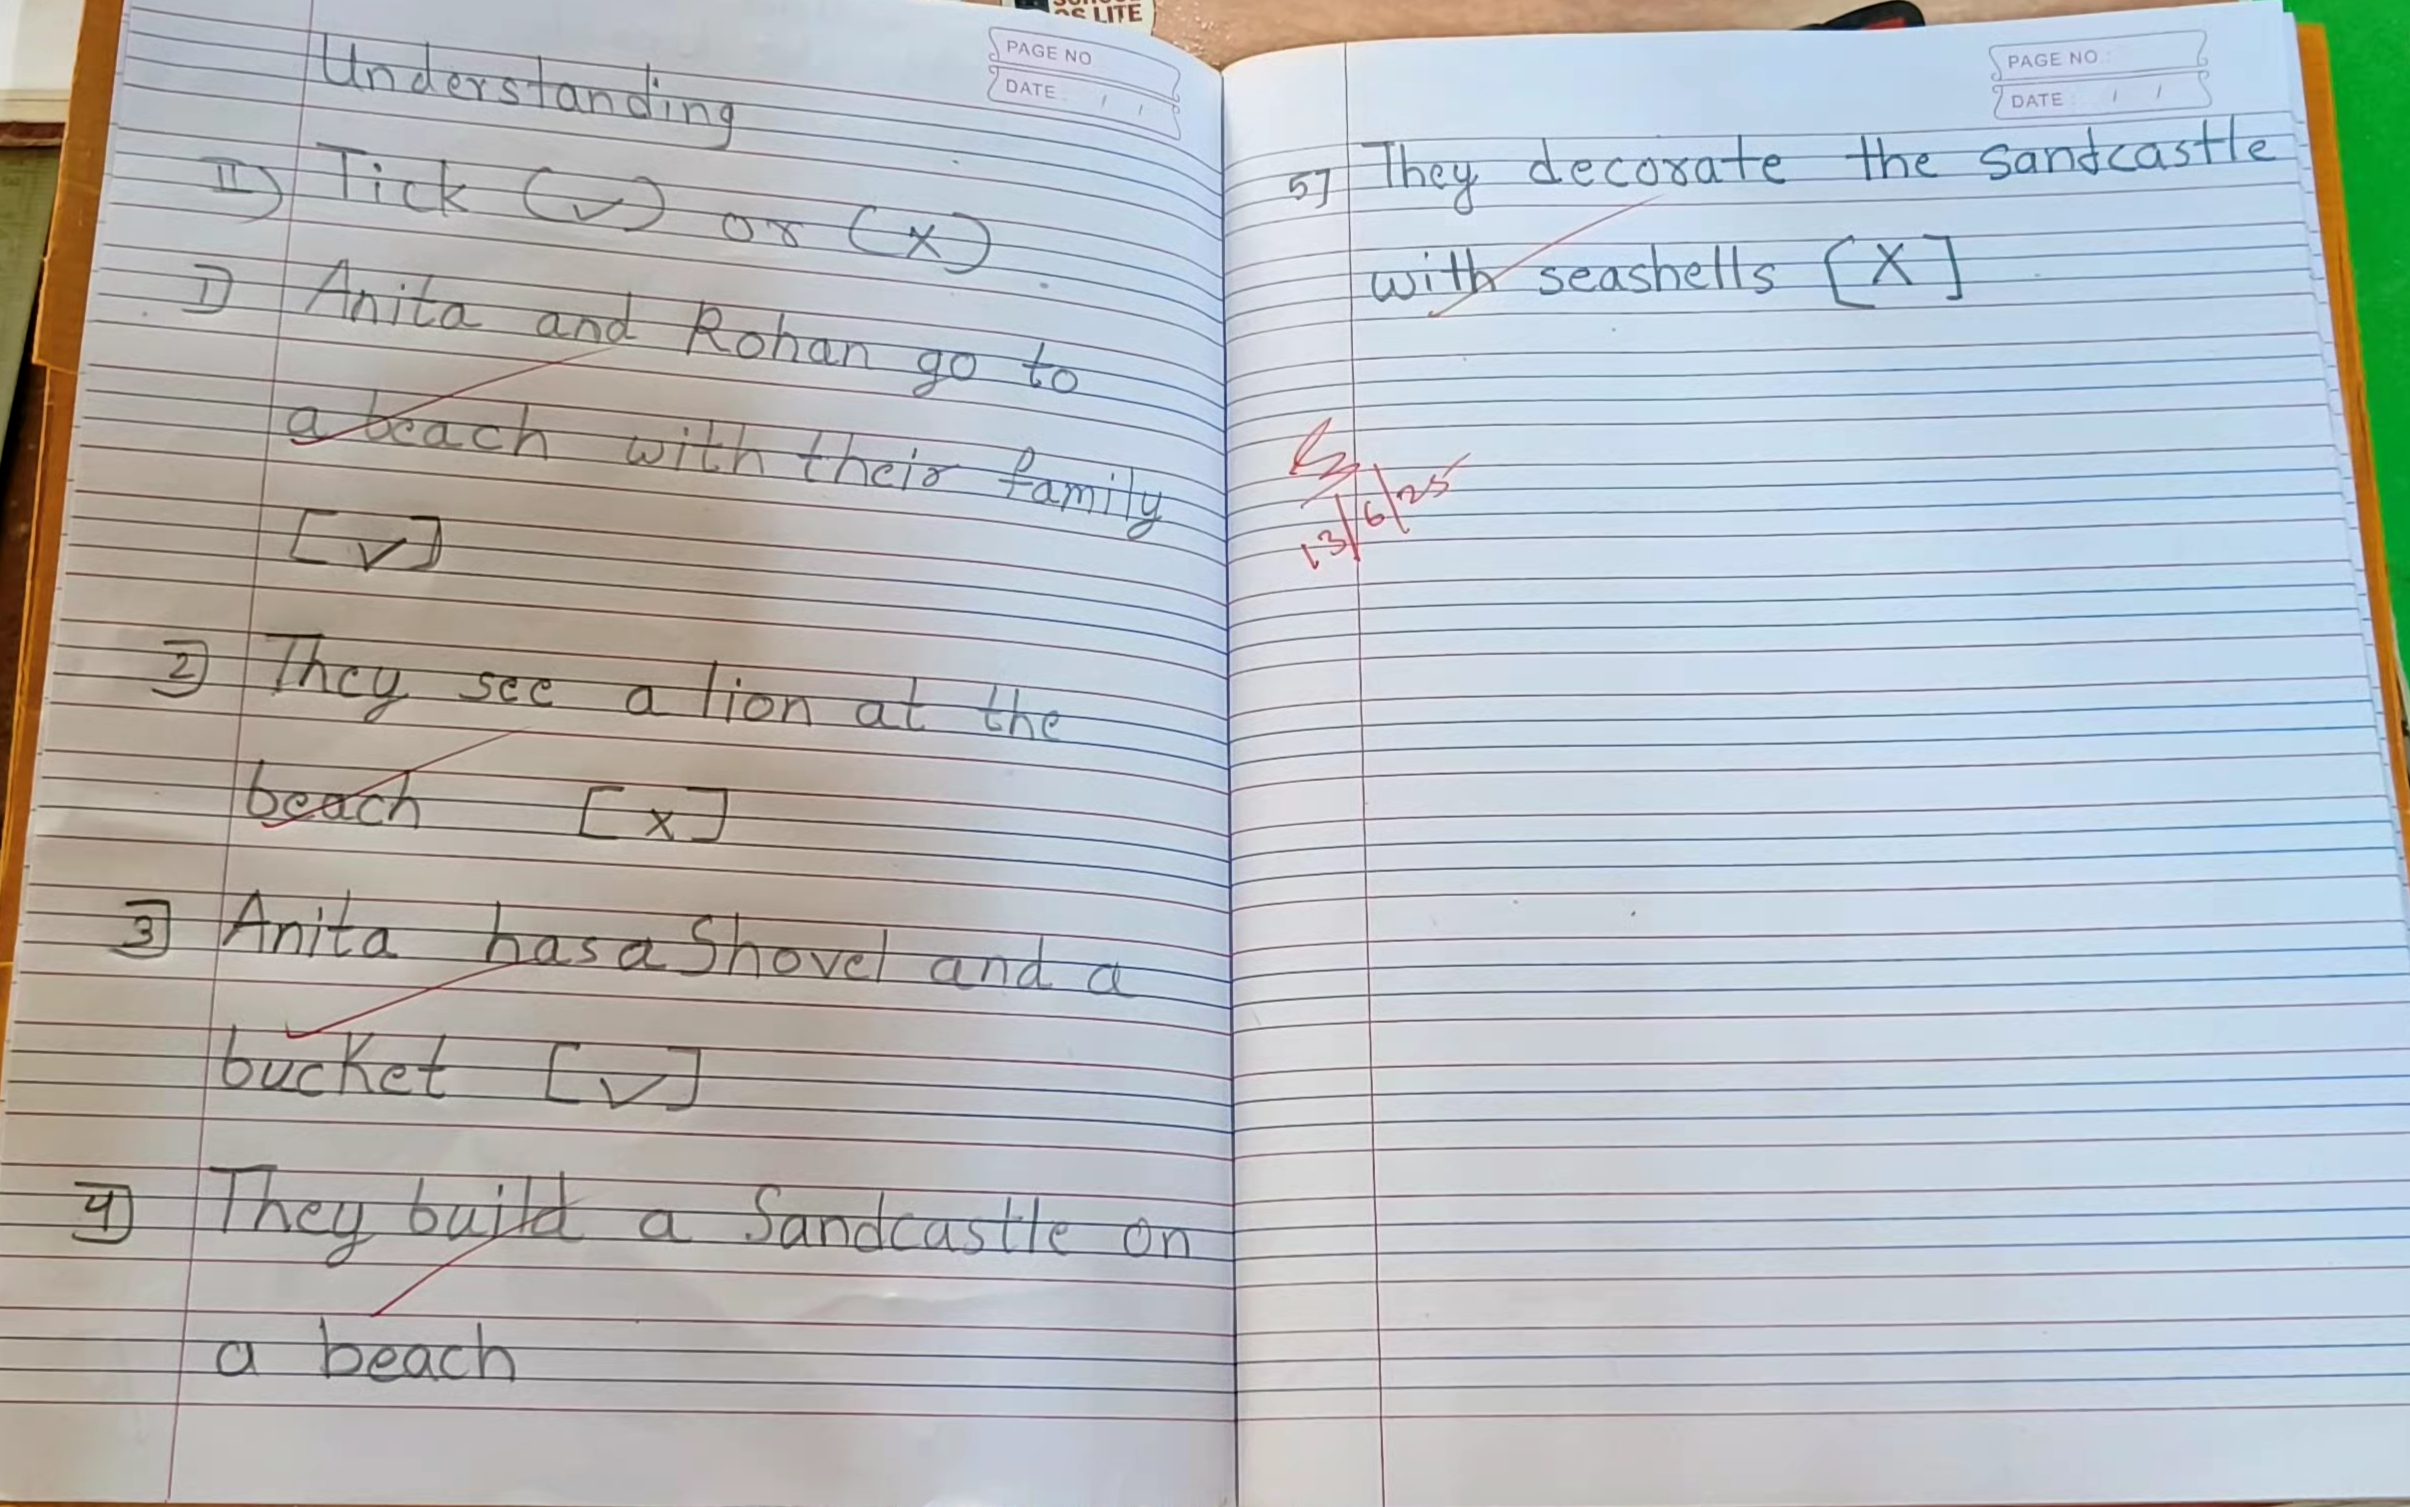 OS LITE
PAGE NO
DATE / /
Understanding
II) Tick (✓) or (x)
1) Anita and Rohan go to
a beach with their family
[✓]
2] They see a lion at the
beach [x]
3] Anita has a Shovel and a
bucket [✓]
4] They build a Sandcastle on
a beach
PAGE NO :
DATE : / /
5] They decorate the sandcastle
with seashells [X]
13/6/25